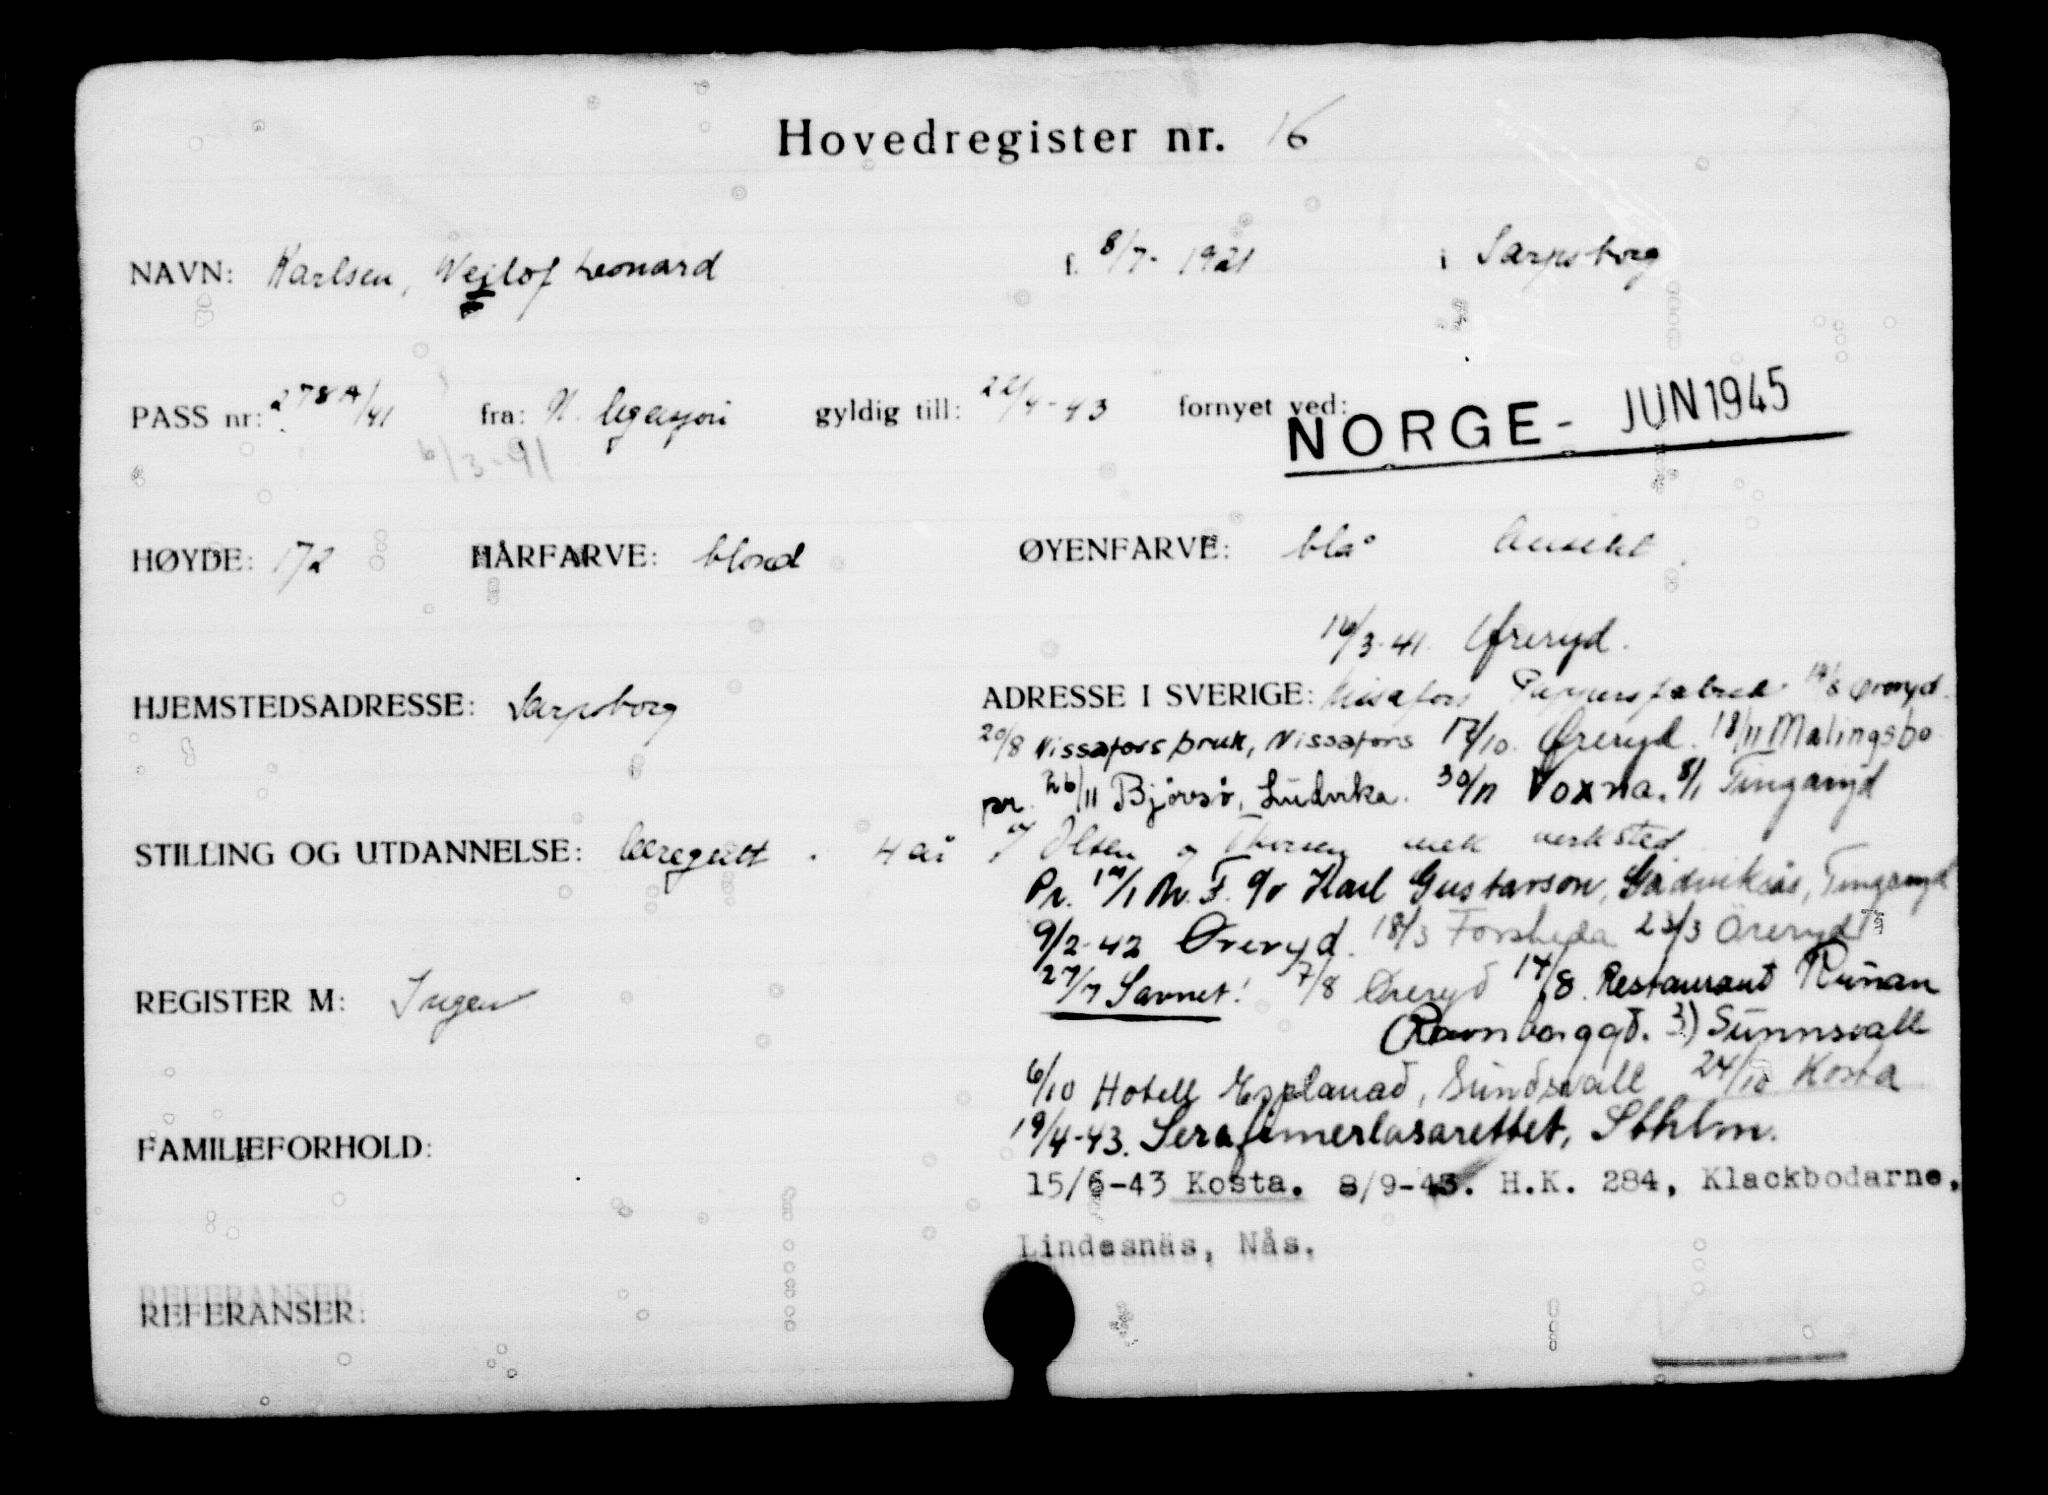 Hovedregister nr. 16
NAVN: Karlsen, Wellof Leonard f. 8/7-1921 i Sarpsborg
PASS nr: 278A/41 fra: N. legasjon gyldig till: 22/4-43 fornyet ved:
NORGE - JUN 1945
6/3-41
HØYDE: 172 HÅRFARVE: blond ØYENFARVE: blå
16/3-41. Øreryd.
HJEMSTEDSADRESSE: Sarpsborg ADRESSE I SVERIGE: Nissafors Pappersfabrik 14/8 Øreryd.
20/8 Nissafors bruk, Nissafors 17/10. Øreryd. 18/11 Malingsbo
pr. 26/11 Bjørsjö, Ludvika. 30/11 Voxna. 8/1 Tingaryd
STILLING OG UTDANNELSE: 4 år Olsen og Thorsen mek verksted
Pr. 14/1 M.F. c/o Karl Gustavson, Tingaryd
9/2-42 Øreryd. 18/3 Forsheda 23/3 Öreryd
REGISTER M: Ingen 27/7 Savnet! 7/8 Øreryd 14/8. Restaurant Runan
3) Sunnsvall
6/10 Hotell Esplanad, Sundsvall 24/10 Kosta
FAMILIEFORHOLD: 19/4-43. Serafimerlasarettet, Sthlm.
15/6-43 Kosta. 8/9-43. H.K. 284, Klackbodarne,
Lindesnäs, Nås.
REFERANSER: